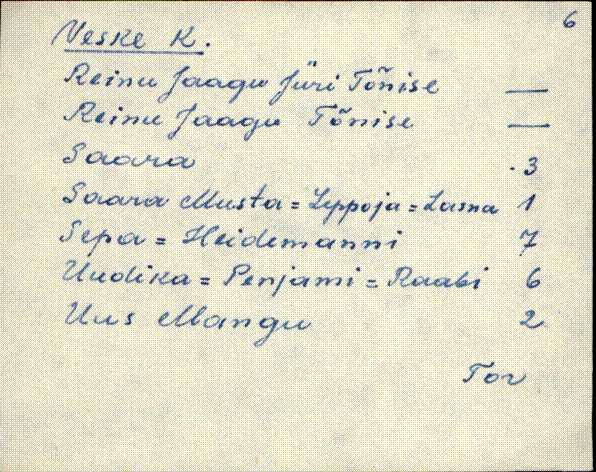 6
Veske K.
Reinu Jaagu Jüri Tõnise —
Reinu Jaagu Tõnise —
Saara 3
Saara Musta = Leppoja = Lasna 1
Sepa = Heidemanni 7
Uudika = Penjami = Raabi 6
Uus Mangu 2
Tor